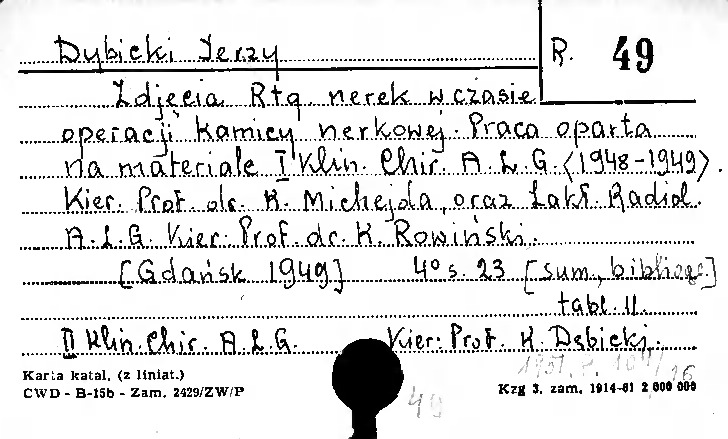 Dybicki Jerzy R. 49
Zdjęcia Rtg nerek w czasie
operacji kamicy nerkowej. Praca oparta
na materiale I Klin. Chir. A. L. G. <1948-1949>.
Kier. Prof. dr. K. Michejda, oraz Zakł. Radiol.
A. L. G. Kier. Prof. dr. K. Rowiński.
[Gdańsk 1949] 4° s. 23 [sum., bibliogr.]
tabl. 11.
II Klin. Chir. A. L. G. Kier: Prof. K. Dębicki.
Karta katal. (z liniat.)
CWD - B-15b - Zam. 2429/ZW/P
Kzg 3, zam. 1914-61 2 000 000